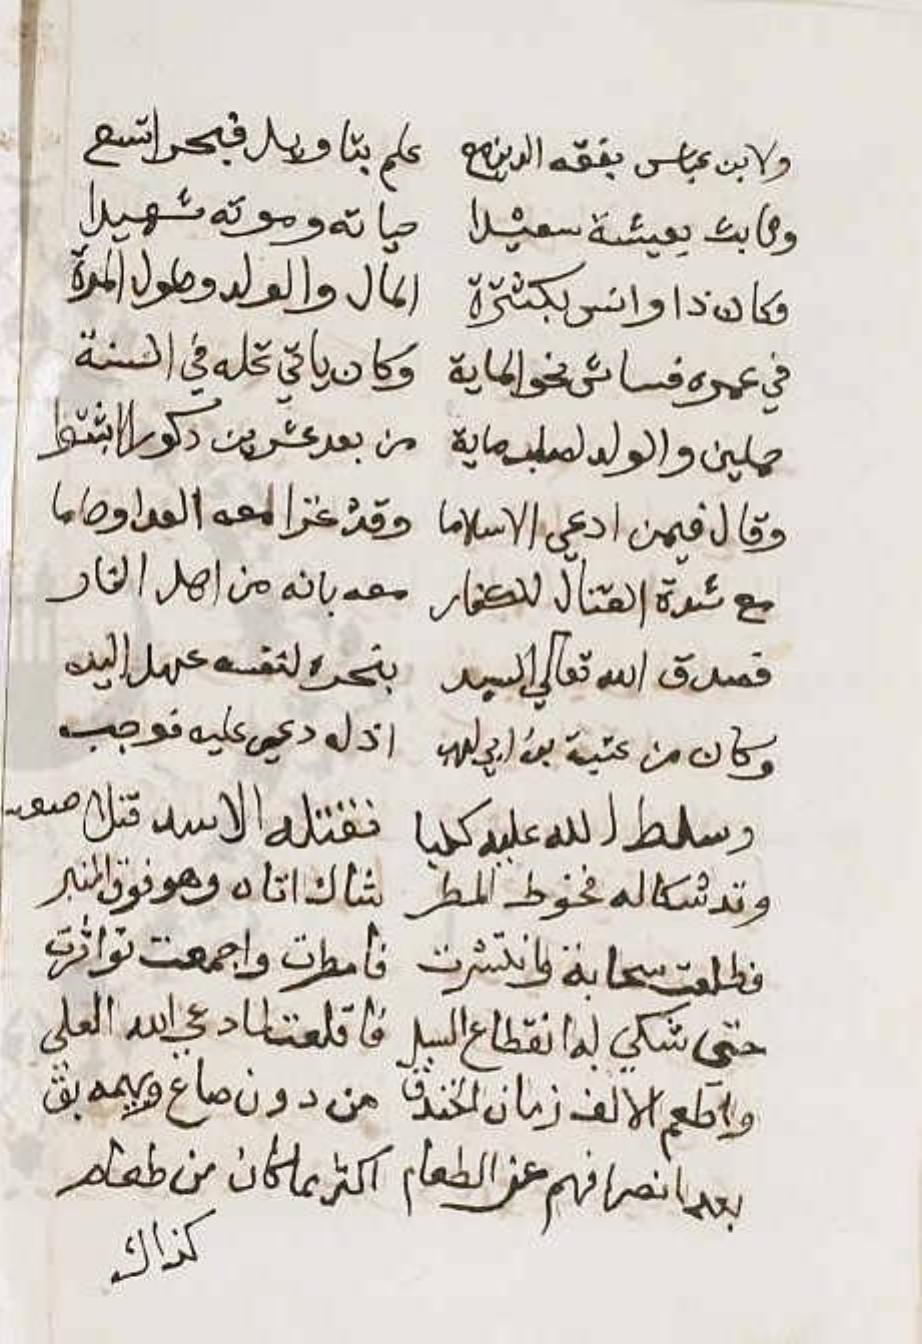 ولابن عباس بفقه الدين مع علم بتاويل فبحر اتسع
وثابت بعيشة سعيدا حياته وموته شهيدا
فكان ذا وانس بكثرة المال والولد وطول المدة
في عمره فعاش نحو الماية وكان ياتي نخله في السنة
حملين والولد لصلب ماية من بعد عشرين ذكورا اثبتوا
وقال فيمن ادعي الاسلاما وقد غزا معه العدا وحاما
مع شدة القتال للكفار معه بانه من اهل النار
فصدق الله تعالي السيد بنحره لنفسه عمل اليد
وكان من عتبة بن ابي لهب اذله دعي عليه فوجب
وسلط الله عليه كلبا فقتله الاسد قتلا صعب
وقد شكا له قحوط المطر شاك اتاه وهو فوق المنبر
فطلعت سحابة وانتشرت فامطرت واجمعت تواترت
حتي شكي له انقطاع السبل فاقلعت لما دعي الله العلي
واطعم الالف زمان الخندق من دون صاع وبهيمه بق
بعد انصرافهم عن الطعام اكثر مما كان من طعام
كذاك